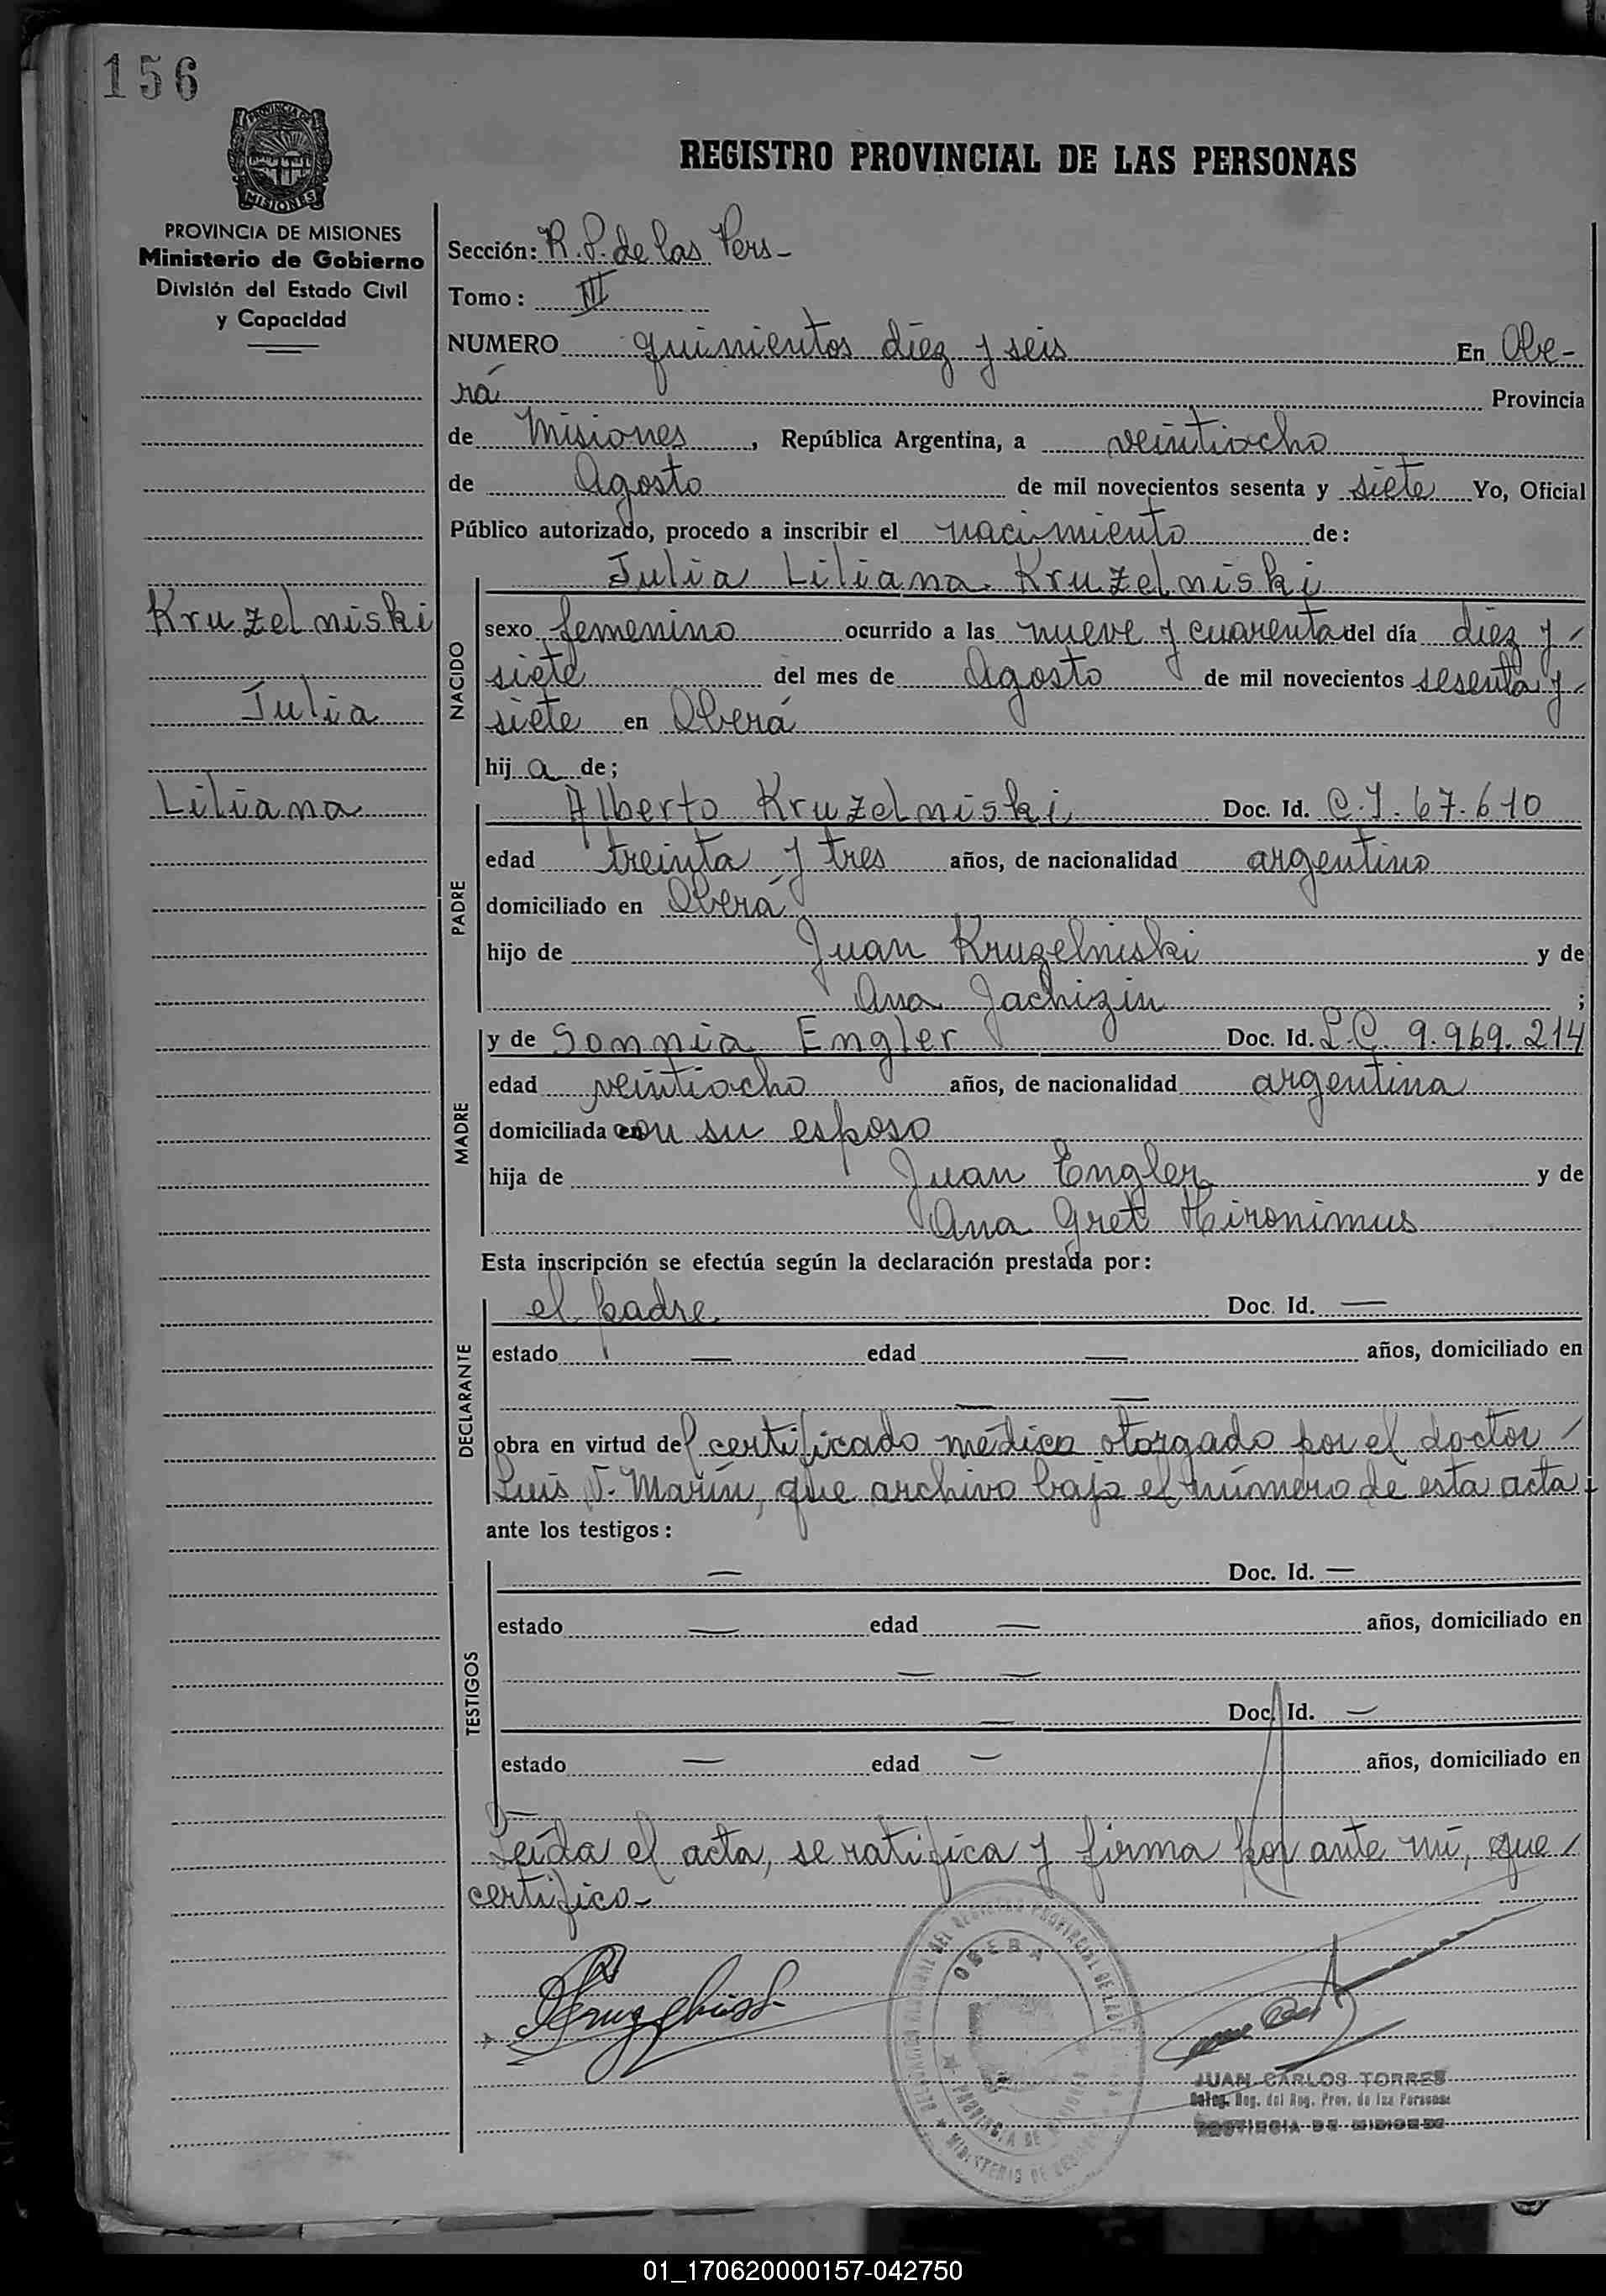 156
PROVINCIA DE
MISIONES
REGISTRO PROVINCIAL DE LAS PERSONAS
PROVINCIA DE MISIONES
Ministerio de Gobierno
División del Estado Civil
y Capacidad
Sección: R.P. de las Pers-
Tomo: III
NUMERO quinientos diez y seis En Obe-
rá Provincia
de Misiones, República Argentina, a veintiocho
de Agosto de mil novecientos sesenta y siete Yo, Oficial
Público autorizado, procedo a inscribir el nacimiento de:
Julia Liliana Kruzelniski
Kruzelniski
Julia
Liliana
NACIDO
sexo femenino ocurrido a las nueve y cuarenta del día diez y
siete del mes de Agosto de mil novecientos sesenta y
siete en Oberá
hija de;
PADRE
Alberto Kruzelniski Doc. Id. C.I. 67.610
edad treinta y tres años, de nacionalidad argentino
domiciliado en Oberá
hijo de Juan Kruzelniski y de
Ana Jachizin ;
MADRE
y de Sonnia Engler Doc. Id. L.C. 9.969.214
edad veintiocho años, de nacionalidad argentina
domiciliada con su esposo
hija de Juan Engler y de
Ana Gret Hironimus
Esta inscripción se efectúa según la declaración prestada por:
DECLARANTE
el padre. Doc. Id. —
estado — edad — años, domiciliado en
— —
obra en virtud del certificado médico otorgado por el doctor
Luis V. Marín, que archivo bajo el número de esta acta;
ante los testigos:
TESTIGOS
— Doc. Id. —
estado — edad — años, domiciliado en
— —
— Doc. Id. —
estado — edad — años, domiciliado en
—
Leída el acta, se ratifica y firma por ante mí, que
certifico-
OBERA
PROVINCIA DE MISIONES
JUAN CARLOS TORRES
Deleg. Reg. del Reg. Prov. de las Personas
PROVINCIA DE MISIONES
01_170620000157-042750